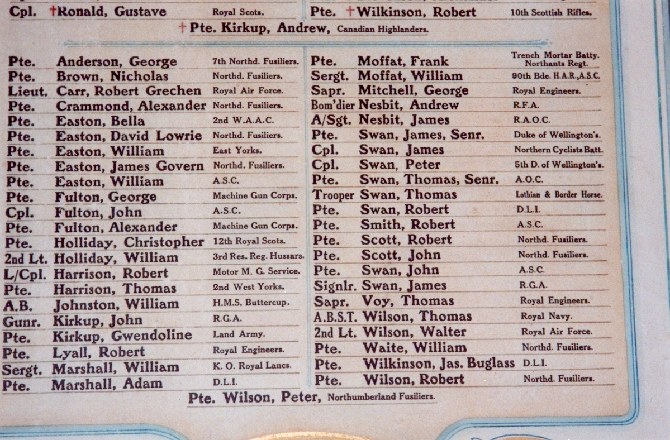 Cpl. †Ronald, Gustave Royal Scots.
Pte. †Wilkinson, Robert 10th Scottish Rifles.
†Pte. Kirkup, Andrew, Canadian Highlanders.
Pte. Anderson, George 7th Northd. Fusiliers.
Pte. Brown, Nicholas Northd. Fusiliers.
Lieut. Carr, Robert Grechen Royal Air Force.
Pte. Crammond, Alexander Northd. Fusiliers.
Pte. Easton, Bella 2nd W.A.A.C.
Pte. Easton, David Lowrie Northd. Fusiliers.
Pte. Easton, William East Yorks.
Pte. Easton, James Govern Northd. Fusiliers.
Pte. Easton, William A.S.C.
Pte. Fulton, George Machine Gun Corps.
Cpl. Fulton, John A.S.C.
Pte. Fulton, Alexander Machine Gun Corps.
Pte. Holliday, Christopher 12th Royal Scots.
2nd Lt. Holliday, William 3rd Res. Reg. Hussars.
L/Cpl. Harrison, Robert Motor M. G. Service.
Pte. Harrison, Thomas 2nd West Yorks.
A.B. Johnston, William H.M.S. Buttercup.
Gunr. Kirkup, John R.G.A.
Pte. Kirkup, Gwendoline Land Army.
Pte. Lyall, Robert Royal Engineers.
Sergt. Marshall, William K. O. Royal Lancs.
Pte. Marshall, Adam D.L.I.
Pte. Moffat, Frank Trench Mortar Batty.
Northants Regt.
Sergt. Moffat, William 90th Bde. H.A.R., A.S.C.
Sapr. Mitchell, George Royal Engineers.
Bom'dier Nesbit, Andrew R.F.A.
A/Sgt. Nesbit, James R.A.O.C.
Pte. Swan, James, Senr. Duke of Wellington's.
Cpl. Swan, James Northern Cyclists Batt.
Cpl. Swan, Peter 5th D. of Wellington's.
Pte. Swan, Thomas, Senr. A.O.C.
Trooper Swan, Thomas Lothian & Border Horse.
Pte. Swan, Robert D.L.I.
Pte. Smith, Robert A.S.C.
Pte. Scott, Robert Northd. Fusiliers.
Pte. Scott, John Northd. Fusiliers.
Pte. Swan, John A.S.C.
Signlr. Swan, James R.G.A.
Sapr. Voy, Thomas Royal Engineers.
A.B.S.T. Wilson, Thomas Royal Navy.
2nd Lt. Wilson, Walter Royal Air Force.
Pte. Waite, William Northd. Fusiliers.
Pte. Wilkinson, Jas. Buglass D.L.I.
Pte. Wilson, Robert Northd. Fusiliers.
Pte. Wilson, Peter, Northumberland Fusiliers.